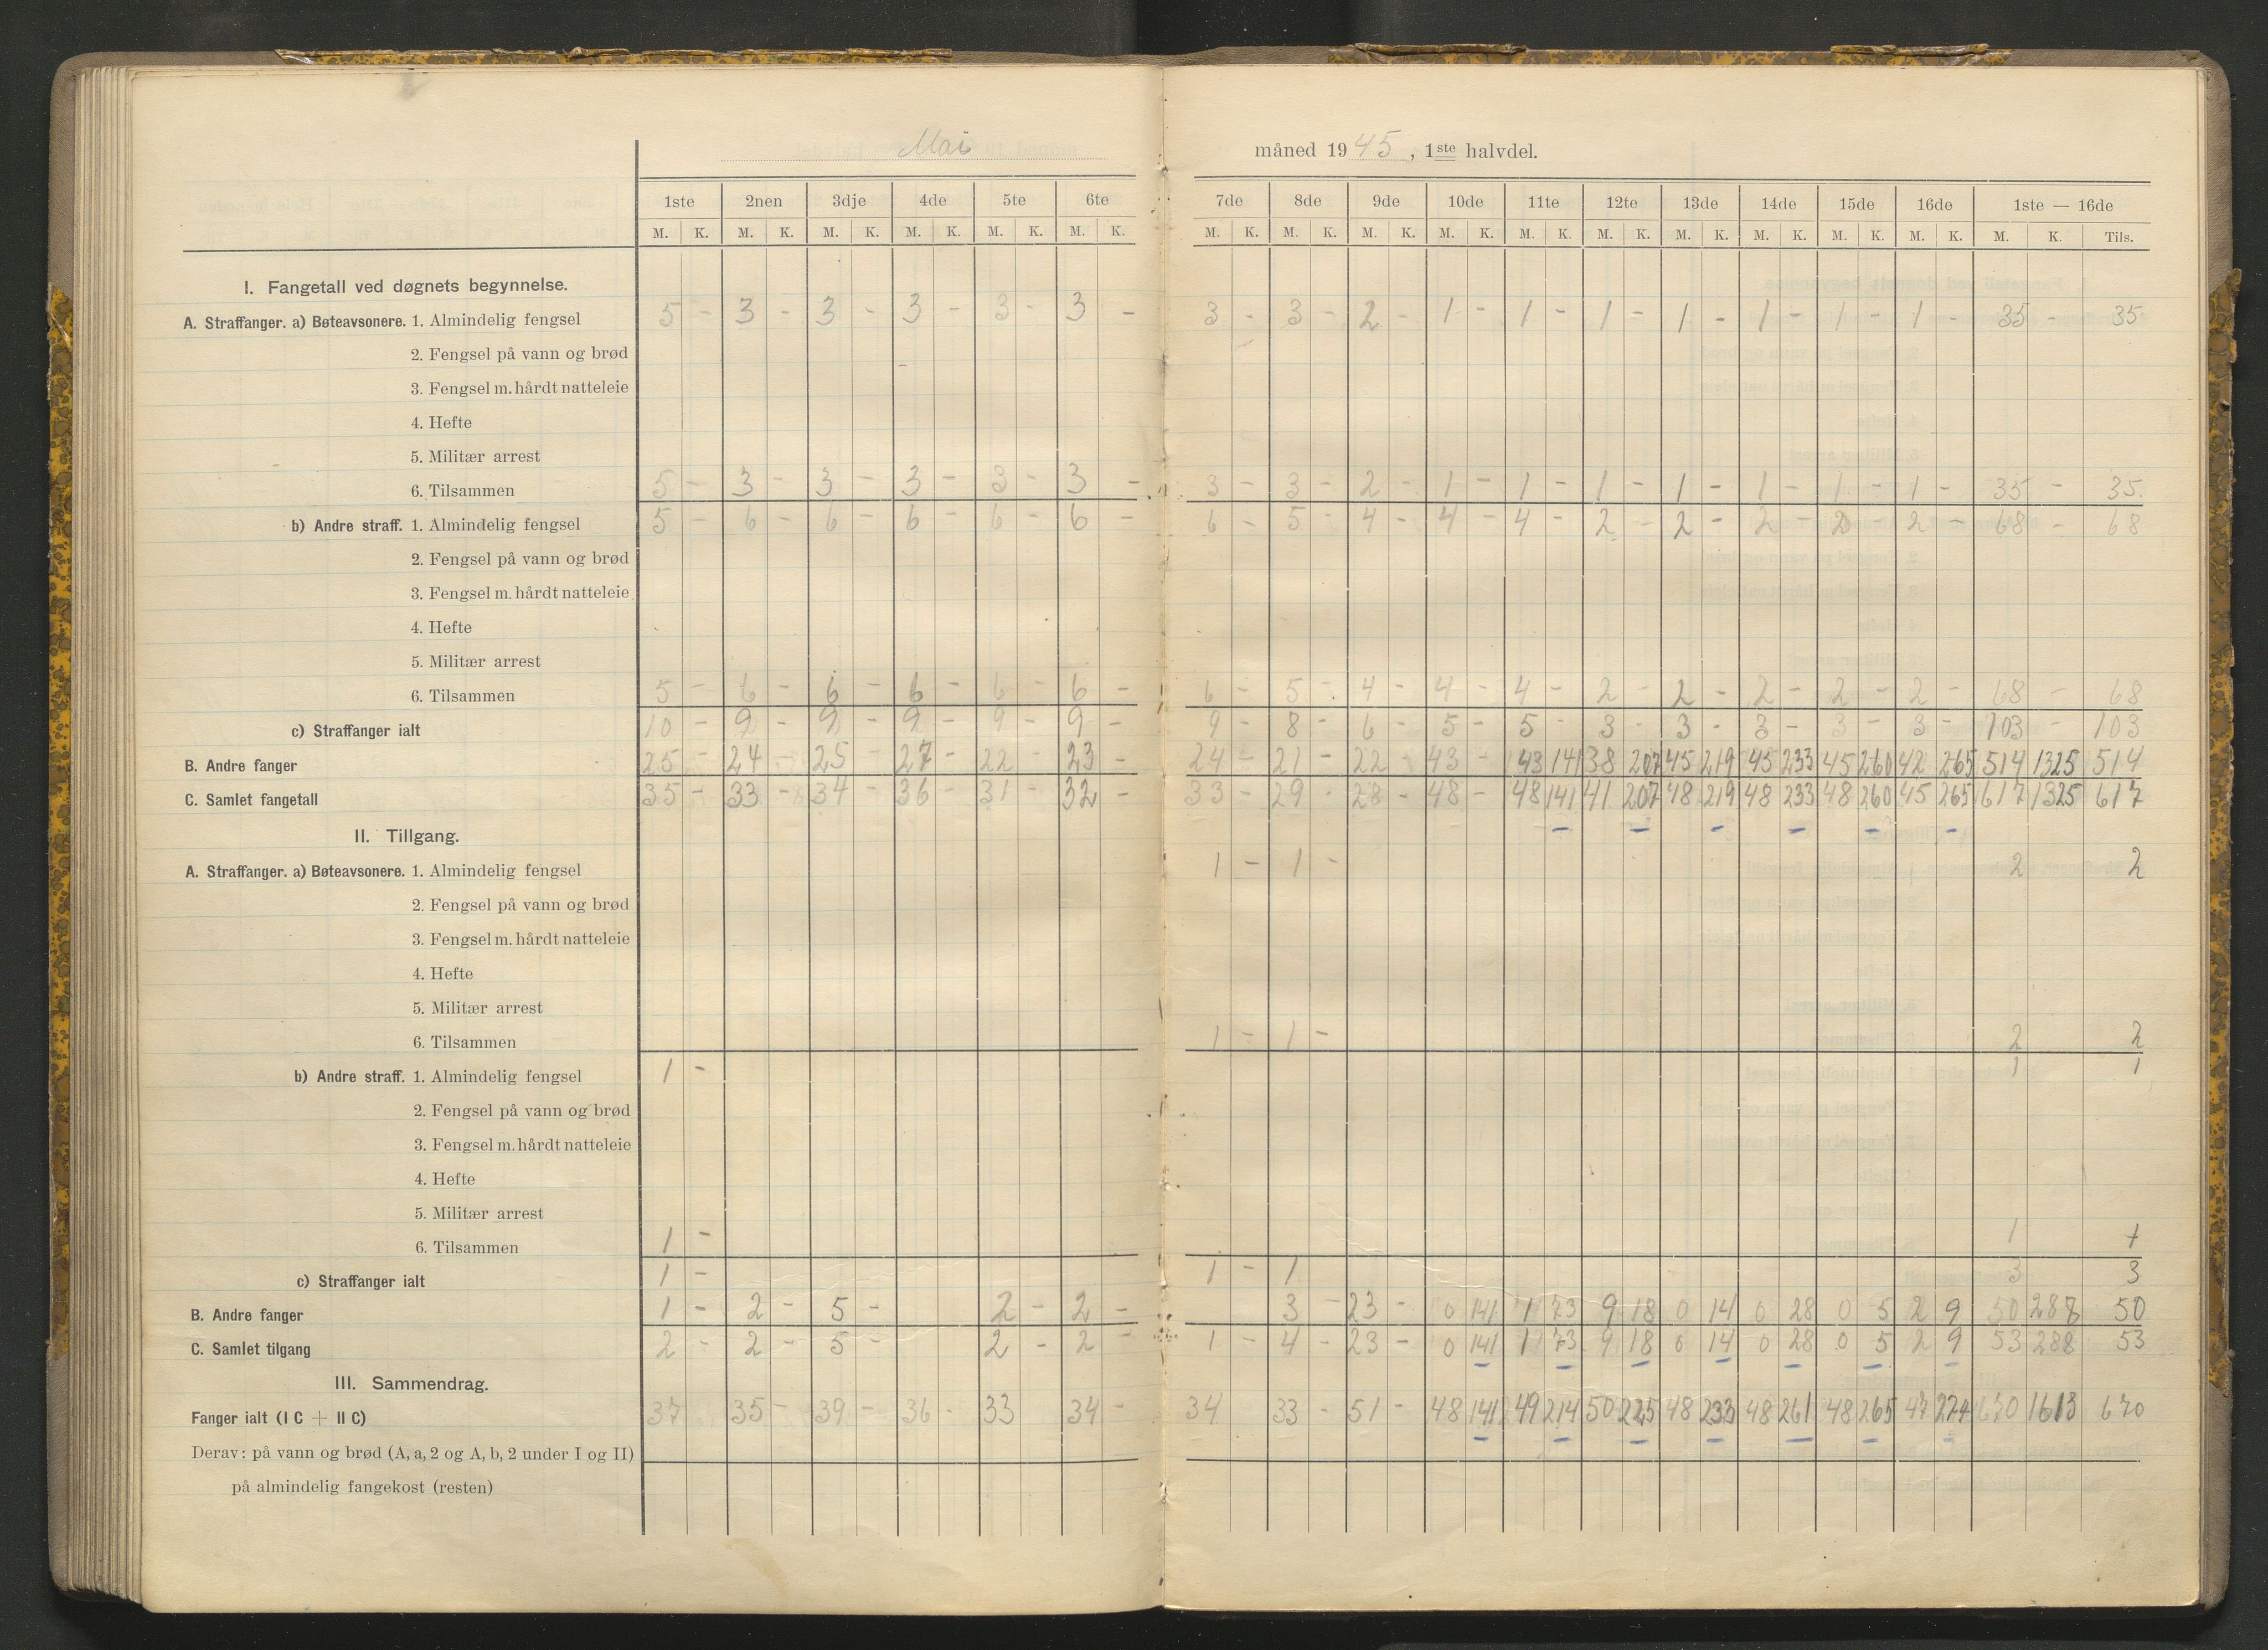 Mai måned 1945, 1ste halvdel.
1ste 2nen 3dje 4de 5te 6te 7de 8de 9de 10de 11te 12te 13de 14de 15de 16de 1ste — 16de
M. K. M. K. M. K. M. K. M. K. M. K. M. K. M. K. M. K. M. K. M. K. M. K. M. K. M. K. M. K. M. K. M. K. Tils.
I. Fangetall ved døgnets begynnelse.
A. Straffanger. a) Bøteavsonere. 1. Almindelig fengsel 5 - 3 - 3 - 3 - 3 - 3 - 3 - 3 - 2 - 1 - 1 - 1 - 1 - 1 - 1 - 1 - 35 - 35
2. Fengsel på vann og brød
3. Fengsel m. hårdt natteleie
4. Hefte
5. Militær arrest
6. Tilsammen 5 - 3 - 3 - 3 - 3 - 3 - 3 - 3 - 2 - 1 - 1 - 1 - 1 - 1 - 1 - 1 - 35 - 35.
b) Andre straff. 1. Almindelig fengsel 5 - 6 - 6 - 6 - 6 - 6 - 6 - 5 - 4 - 4 - 4 - 2 - 2 - 2 - 2 - 2 - 68 - 68
2. Fengsel på vann og brød
3. Fengsel m. hårdt natteleie
4. Hefte
5. Militær arrest
6. Tilsammen 5 - 6 - 6 - 6 - 6 - 6 - 6 - 5 - 4 - 4 - 4 - 2 - 2 - 2 - 2 - 2 - 68 - 68
c) Straffanger ialt 10 - 9 - 9 - 9 - 9 - 9 - 9 - 8 - 6 - 5 - 5 - 3 - 3 - 3 - 3 - 3 - 103 - 103
B. Andre fanger 25 - 24 - 25 - 27 - 22 - 23 - 24 - 21 - 22 - 43 - 43 141 38 207 45 219 45 233 45 260 42 265 514 1325 514
C. Samlet fangetall 35 - 33 - 34 - 36 - 31 - 32 - 33 - 29 - 28 - 48 - 48 141 41 207 48 219 48 233 48 260 45 265 617 1325 617
II. Tillgang.
A. Straffanger. a) Bøteavsonere. 1. Almindelig fengsel 1 - 1 - 2 2
2. Fengsel på vann og brød
3. Fengsel m. hårdt natteleie
4. Hefte
5. Militær arrest
6. Tilsammen 1 - 1 - 2 2
b) Andre straff. 1. Almindelig fengsel 1 - 1 1
2. Fengsel på vann og brød
3. Fengsel m. hårdt natteleie
4. Hefte
5. Militær arrest
6. Tilsammen 1 - 1 1
c) Straffanger ialt 1 - 1 - 1 3 3
B. Andre fanger 1 - 2 - 5 - 2 - 2 - 3 - 23 - 0 141 1 73 9 18 0 14 0 28 0 5 2 9 50 288 50
C. Samlet tilgang 2 - 2 - 5 - 2 - 2 - 1 - 4 - 23 - 0 141 1 73 9 18 0 14 0 28 0 5 2 9 53 288 53
III. Sammendrag.
Fanger ialt (I C + II C) 37 35 - 39 - 36 - 33 34 - 34 33 - 51 - 48 141 49 214 50 225 48 233 48 261 48 265 47 274 670 1613 670
Derav: på vann og brød (A, a, 2 og A, b, 2 under I og II)
på almindelig fangekost (resten)